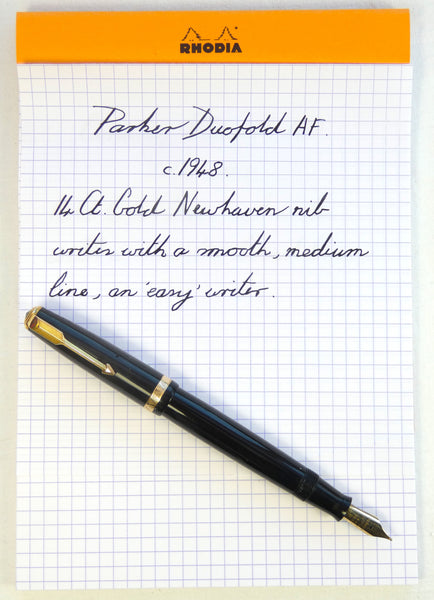 RHODIA
Parker Duofold AF.
c.1948.
14 Ct. Gold Newhaven nib
writes with a smooth, medium
line, an 'easy' writer.